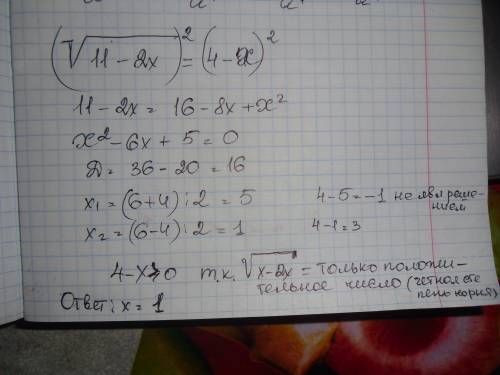 (√11 - 2x)² = (4 - x)²
11 - 2x = 16 - 8x + x²
x² - 6x + 5 = 0
Д = 36 - 20 = 16
x₁ = (6+4) : 2 = 5 4-5 = -1 не явл реше-
нием
x₂ = (6-4) : 2 = 1 4-1 = 3
4 - x ≥ 0 т.к. √x-2x = только положи-
тельное число (четная сте
пень корня)
Ответ: x = 1